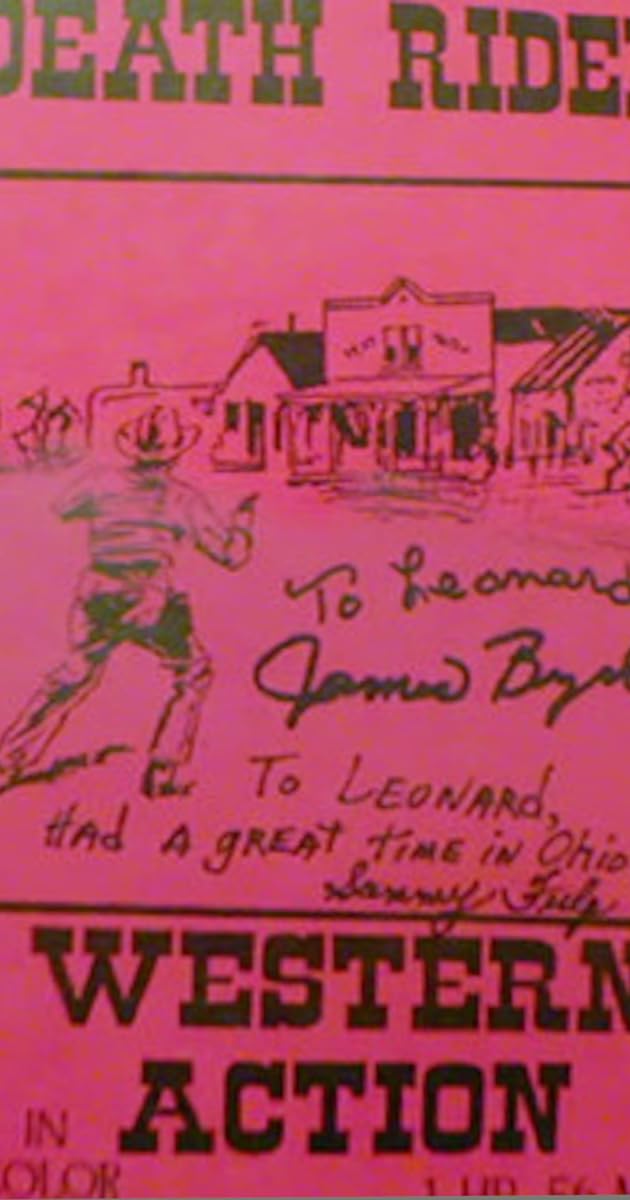 DEATH RIDE
To Leonard
James Byr
To LEONARd,
HAd A gREAT TiME iN Ohio
Sammy Fulp
WESTERN
ACTION
IN
COLOR
1 HR. 56 M